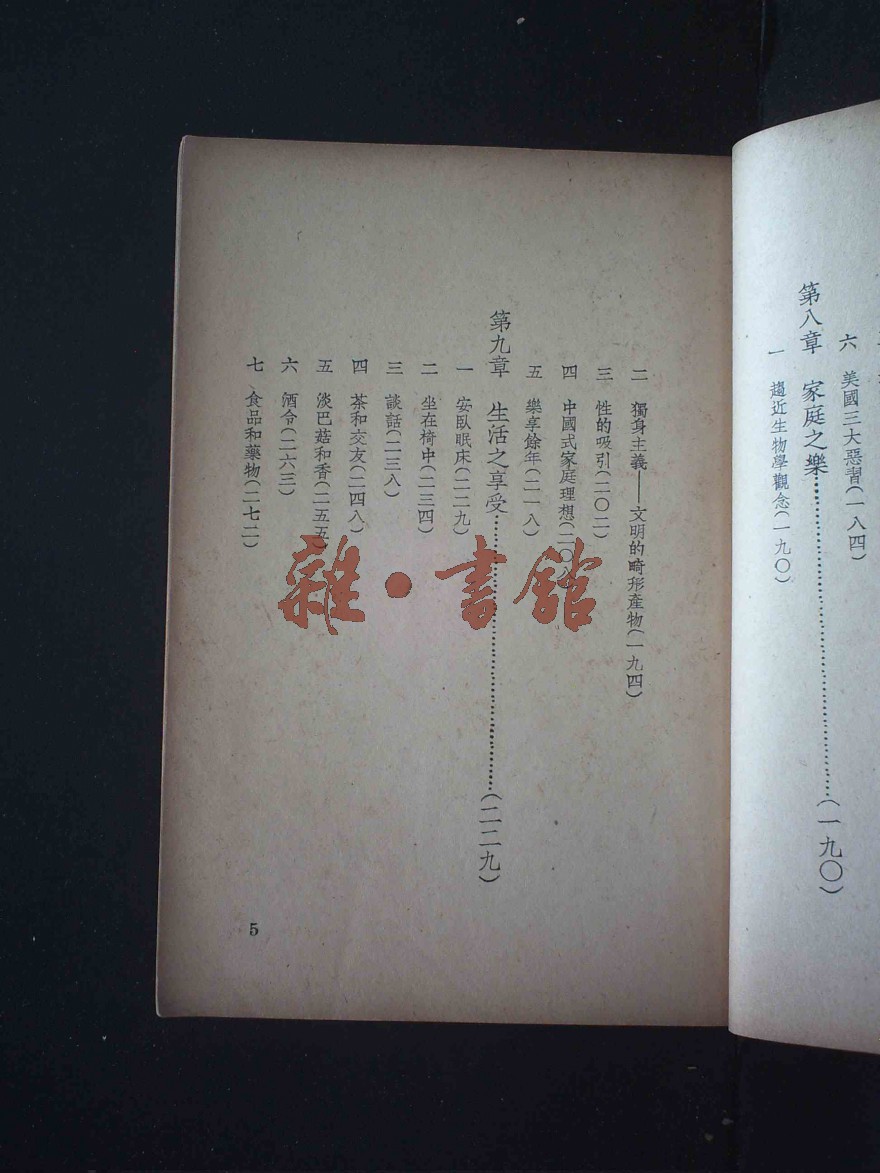 六　美國三大惡習(一八四)
第八章　家庭之樂……(一九〇)
一　趨近生物學觀念(一九〇)
二　獨身主義——文明的畸形產物(一九四)
三　性的吸引(二〇二)
四　中國式家庭理想(二〇八)
五　樂享餘年(二一八)
第九章　生活之享受……(二二九)
一　安臥眠床(二二九)
二　坐在椅中(二三四)
三　談話(二三八)
四　茶和交友(二四八)
五　淡巴菇和香(二五五)
六　酒令(二六三)
七　食品和藥物(二七二)
5
雜·書館